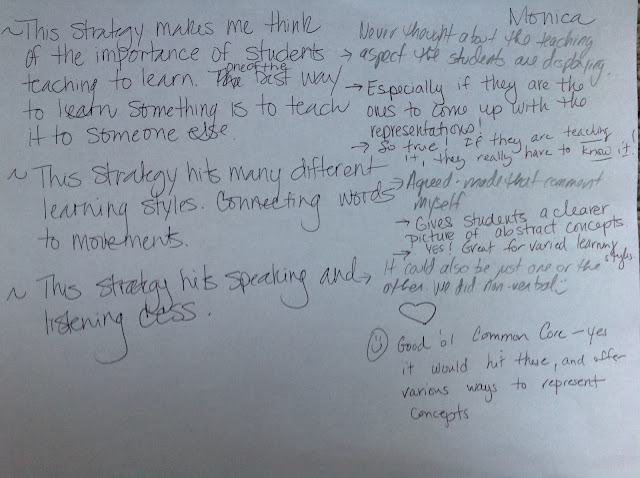 Monica
~This strategy makes me think
of the importance of students
teaching to learn. one of the best way
to learn something is to teach
it to someone else.
~ This strategy hits many different
learning styles. Connecting words
to movements.
~ This strategy hits speaking and
listening CCSS.
Never thought about the teaching
→ aspect the students are displaying.
→ Especially if they are the
ones to come up with the
representations!
→ So true! If they are teaching
it, they really have to know it!
→ Agreed - made that comment
myself
→ Gives students a clearer
picture of abstract concepts
→ Yes! Great for varied learning
styles
→ It could also be just one or the
other. We did non-verbal :)
Good ol' Common Core - yes
it would hit these, and offer
various ways to represent
concepts